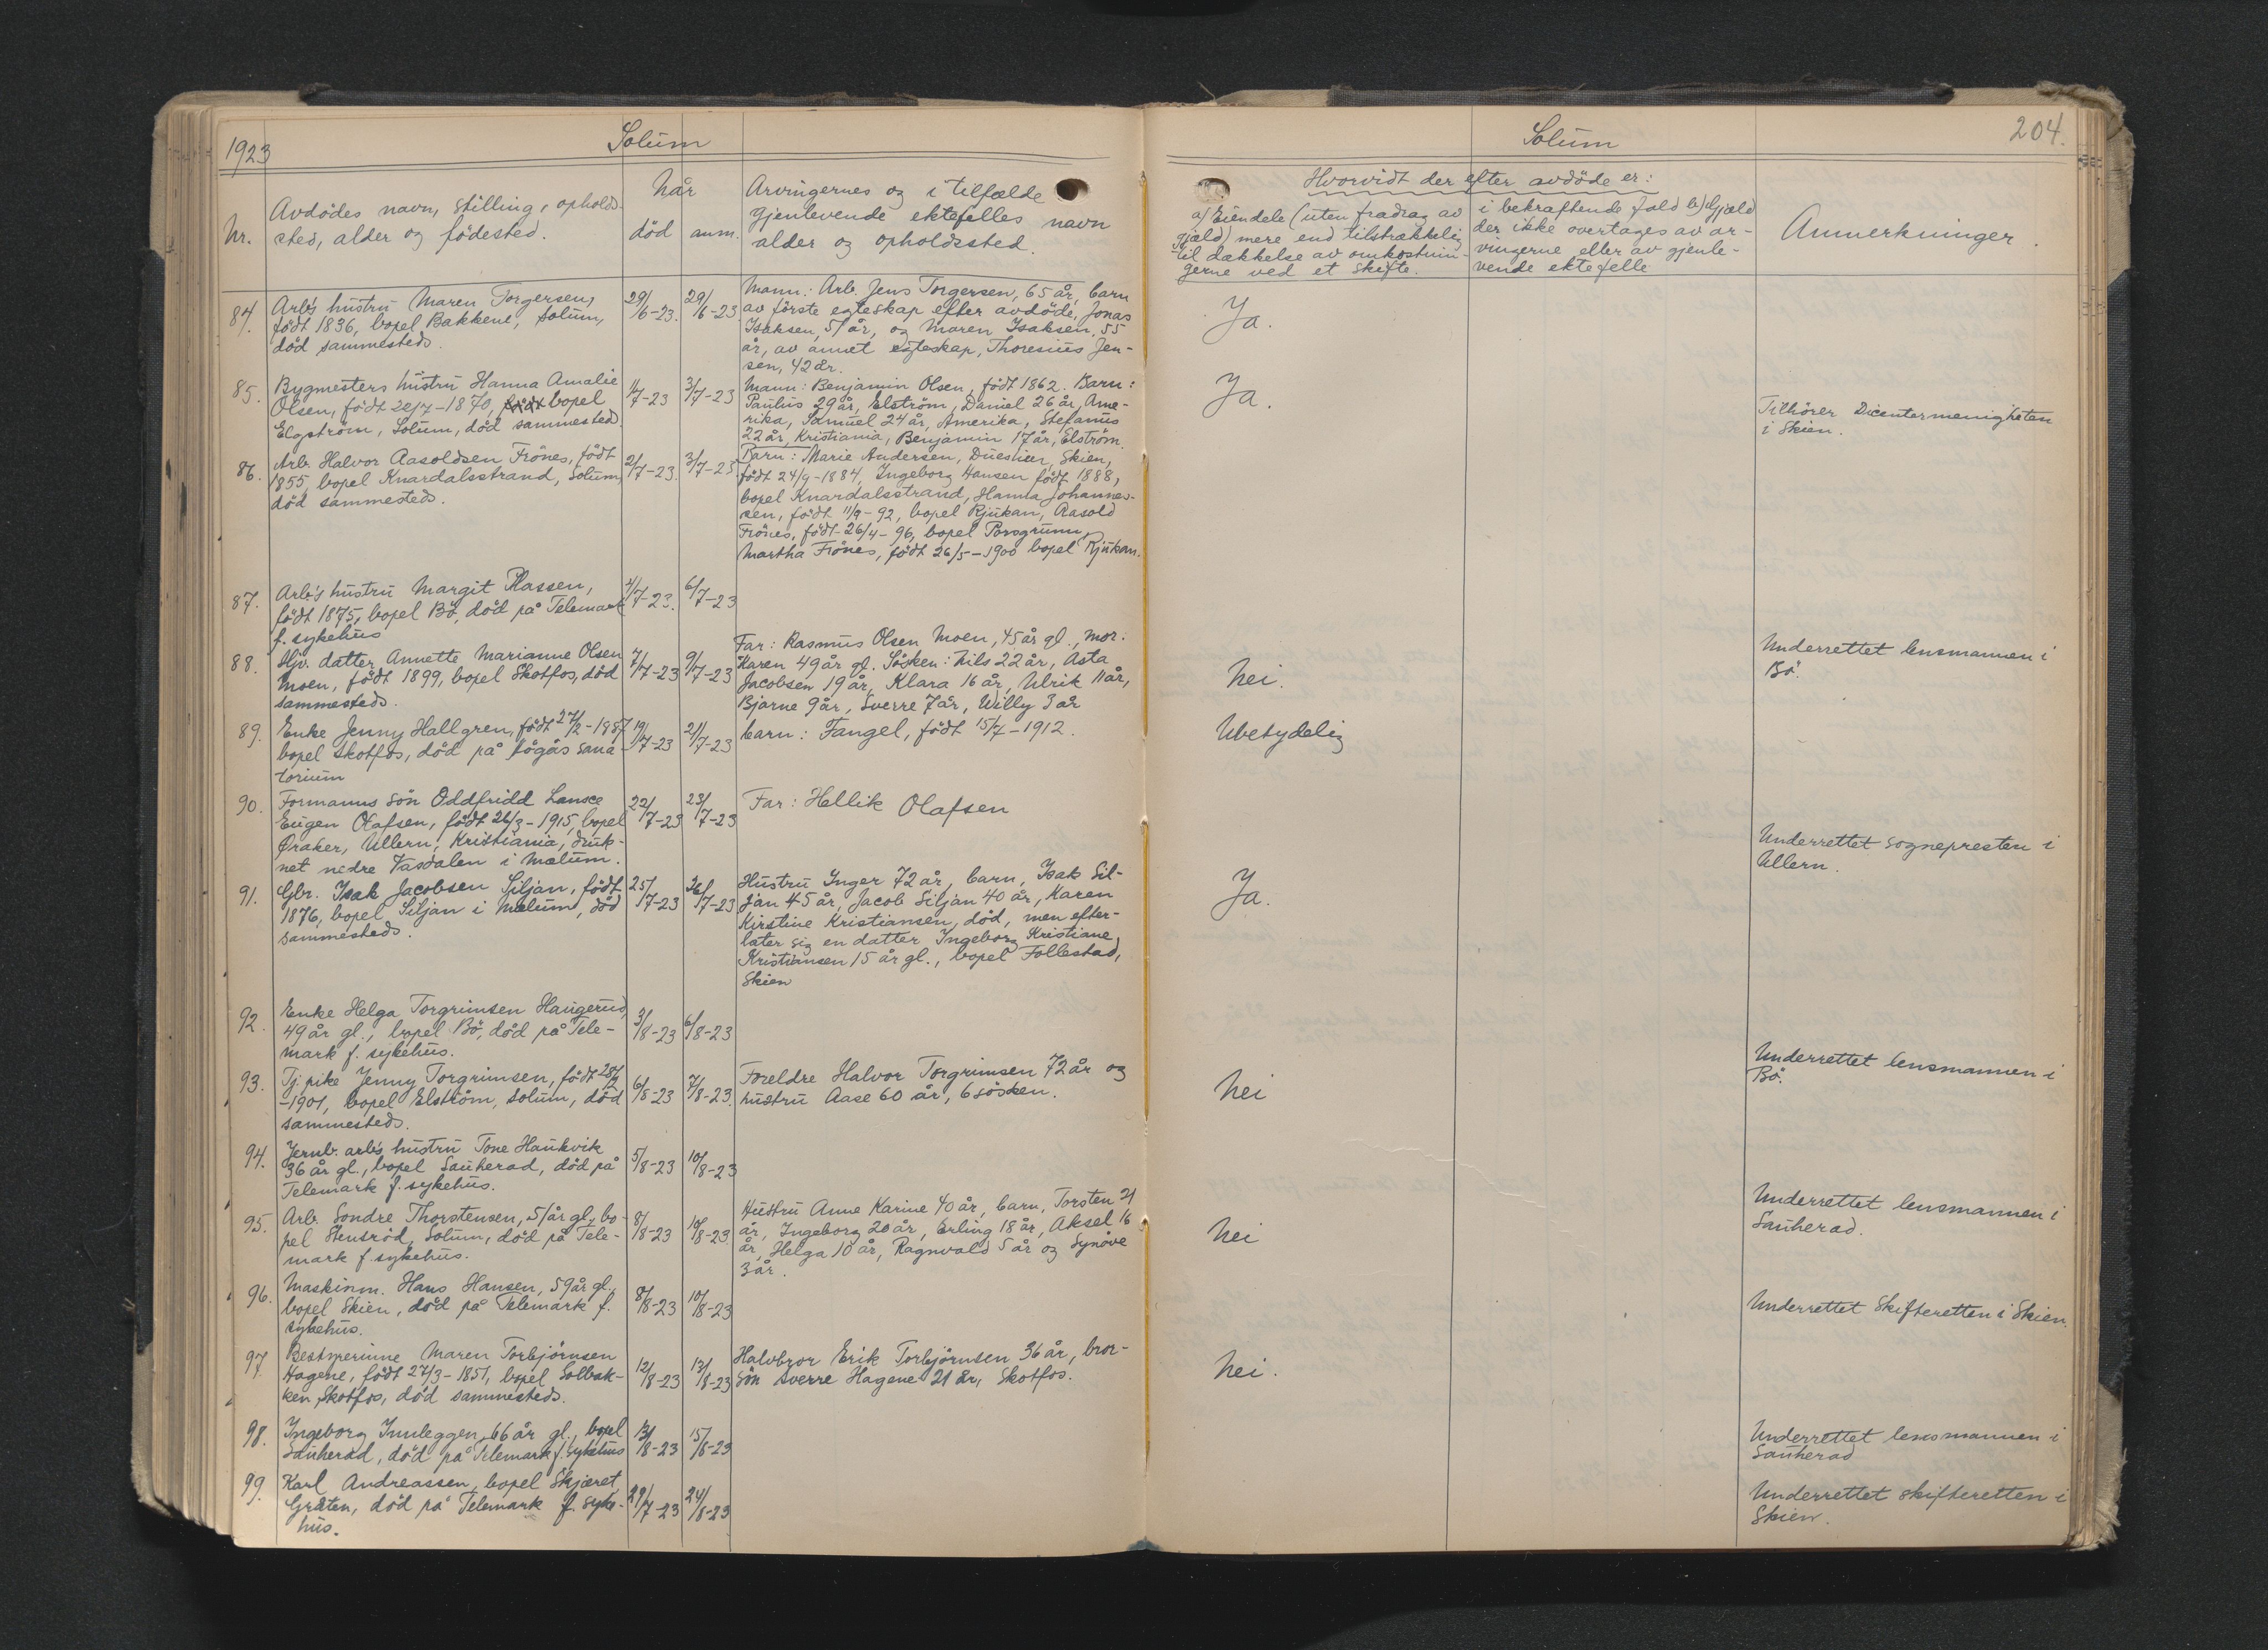 1923
Solum
Nr.
Avdödes navn, stilling, opholds-
sted, alder og födested.
Når
död anm.
Arvingernes og i tilfælde
gjenlevende ektefelles navn
alder og opholdssted.
84.
Arb's hustru Maren Torgersen,
födt 1836, bopel Bakkene, Solum,
död sammesteds.
29/6-23. 29/6-23.
Mann: Arb. Jens Torgersen, 65 år, barn
av förste egteskap efter avdöde, Jonas
Isaksen, 57 år, og Maren Isaksen, 55
år, av annet egteskap, Thoresius Jen-
sen, 42 år.
85.
Bygmesters hustru Hanna Amalie
Olsen, födt 20/7-1870, födt bopel
Elgström, Solum, död sammested.
1/7-23 3/7-23
Mann: Benjamin Olsen, födt 1862. Barn:
Paulus 29 år, Elström, Daniel 26 år, Ame-
rika, Samuel 24 år, Amerika, Stefanus
22 år, Kristiania, Benjamin 17 år, Elström.
86.
Arb. Halvor Aasoldsen Frönes, födt
1855, bopel Knardalsstrand, Solum,
död sammesteds.
2/7-23. 3/7-23
Barn: Marie Andersen, Duestien, Skien,
födt 24/9-1884, Ingeborg Hansen födt 1888,
bopel Knardalsstrand, Hanna Johannes-
sen, födt 11/9-92, bopel Rjukan, Aasold
Frönes, födt 26/4-96, bopel Porsgrunn,
Martha Frönes, födt 26/5-1900 bopel Rjukan.
87.
Arb's hustru Margit Plassen,
födt 1875, bopel Bö, död på Telemark
f. sykehus
4/7-23. 6/7-23
88.
Hjv. datter Annette Marianne Olsen
Moen, födt 1899, bopel Skotfos, död
sammesteds.
7/7-23 9/7-23
Far: Rasmus Olsen Moen, 45 år gl., mor:
Karen 49 år gl. Sösken: Nils 22 år, Asta
Jacobsen 19 år, Klara 16 år, Ulrik 11 år,
Bjarne 9 år, Sverre 7 år, Willy 3 år
89.
Enke Jenny Hallgren, födt 27/2-1887
bopel Skotfos, död på Fögås sana-
torium
19/7-23 21/7-23
barn: Fangel, födt 15/7-1912.
90.
Formanns sön Oddfridd
Eugen Olafsen, födt 26/3-1915, bopel
Øraker, Ullern, Kristiania, druk-
net nedre Vasdalen i Mælum.
22/7-23 23/7-23
Far: Hellik Olafsen
91.
Gbr. Isak Jacobsen Siljan, födt
1876, bopel Siljan i Mælum, död
sammesteds.
25/7-23 26/7-23
Hustru Inger 72 år, barn, Isak Sil-
jan 45 år, Jacob Siljan 40 år, Karen
Kirstine Kristiansen, död, men efter-
later sig en datter Ingeborg Kristiane
Kristiansen 15 år gl., bopel Follestad,
Skien
92.
Enke Helga Torgrimsen Haugerud,
49 år gl., bopel Bö, död på Tele-
mark f. sykehus.
3/8-23 6/8-23
93.
Tj. pike Jenny Torgrimsen, födt 28/2
-1901, bopel Elström, Solum, död
sammesteds.
6/8-23 7/8-23.
Foreldre Halvor Torgrimsen 72 år og
hustru Aase 60 år, 6 sösken.
94.
Jernb. arb's hustru Tone Haukvik
36 år gl., bopel Sauherad, död på
Telemark f. sykehus.
5/8-23 10/8-23
95.
Arb. Sondre Thorstensen, 51 år gl., bo-
pel Stensröd, Solum, död på Tele-
mark f. sykehus.
8/8-23 10/8-23
Hustru Anne Karine 40 år, barn, Torsten 21
år, Ingeborg 20 år, Erling 18 år, Aksel 16
år, Helga 10 år, Ragnvald 5 år og Synöve
3 år.
96.
Maskinm. Hans Hansen, 59 år gl.,
bopel Skien, död på Telemark f.
sykehus.
8/8-23 10/8-23
97.
Bestyrerinne Maren Torbjörnsen
Hagene, födt 27/3-1851, bopel Solbak-
ken, Skotfos, död sammesteds.
12/8-23 13/8-23
Halvbror Erik Torbjörnsen 36 år, bror-
sön Sverre Hagene 21 år, Skotfos.
98.
Ingeborg Innleggen, 66 år gl., bopel
Sauherad, död på Telemark f. sykehus
13/8-23 15/8-23
99.
Karl Andreassen, bopel Skjæret,
Gråten, död på Telemark f. syke-
hus.
29/7-23 24/8-23
Solum
204.
Hvorvidt der efter avdöde er:
a) Eiendele (uten fradrag av
gjæld) mere end tilstrækkelig
til dækkelse av omkostnin-
gerne ved et skifte.
i bekræftende fald b) Gjæld
der ikke overtages av ar-
vingerne eller av gjenle-
vende ektefelle
Anmerkninger.
Ja.
Ja.
Tilhörer Dicentermenigheten
i Skien.
Underrettet lensmannen i
Bö.
Nei.
Ubetydelig
Underrettet sognepresten i
Ullern.
Ja.
Underrettet lensmannen i
Bö.
Nei
Underrettet lensmannen i
Sauherad.
Nei
Underrettet Skifteretten i Skien.
Nei.
Underrettet lensmannen i
Sauherad
Underrettet skifteretten i
Skien.